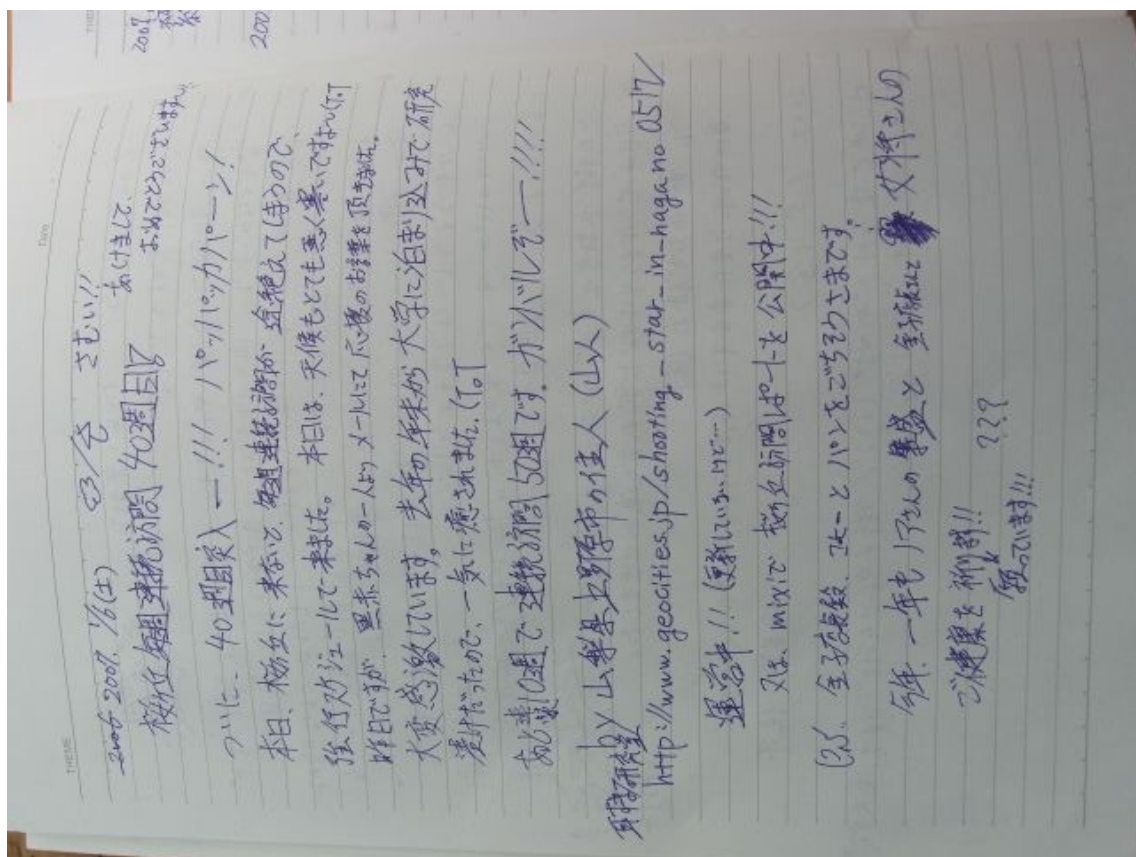 THEME
Date
2007. 1/6(土) さむい!!
桜丘毎週連続訪問40週目 あけまして、
おめでとうございます。
ついに、40週目突入ー!!! パッパパッカパーン!
本日、桜丘に来ないと、毎週連続訪問が途絶えてしまうので、
強行スケジュールで来ました。本日は、天候もとても悪く寒いですよ~(T.T
昨日ですが、黒赤ちゃんの一人よりメールにて応援のお言葉を頂きました。
大変感激しています。去年の年末から大学に泊まり込みで研究
漬けだったので、一気に癒されました。(ToT
あと残10週で連続訪問50週です。ガンバルぞー!!!!
by 山梨県 野市の住人(山人)
http://www.geocities.jp/shooting_star_in_nagano_0517/
運営中!! (更新していないけど…)
又は、mixiで桜丘訪問レポートを公開中!!!
コーヒーとパンをごちそうさまです。
今年一年も と 女将さんの
ご健康を祈願!! ???
願っています!!!
2007.
200
THEME